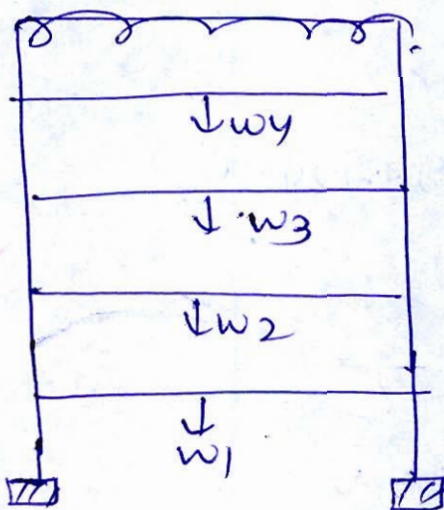 ↓w4
↓w3
↓w2
↓
w1